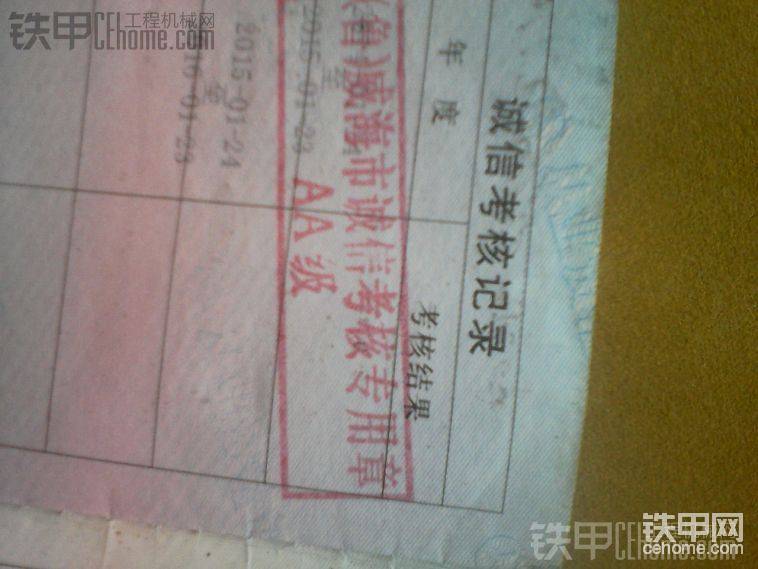 铁甲 工程机械网
CEhome.com
诚信考核记录
年度
考核结果
(鲁)威海市诚信考核专用章
AA级
至
2015-01-23
2015-01-24
至
16-01-23
铁甲网
cehome.com
铁甲CEhome.com